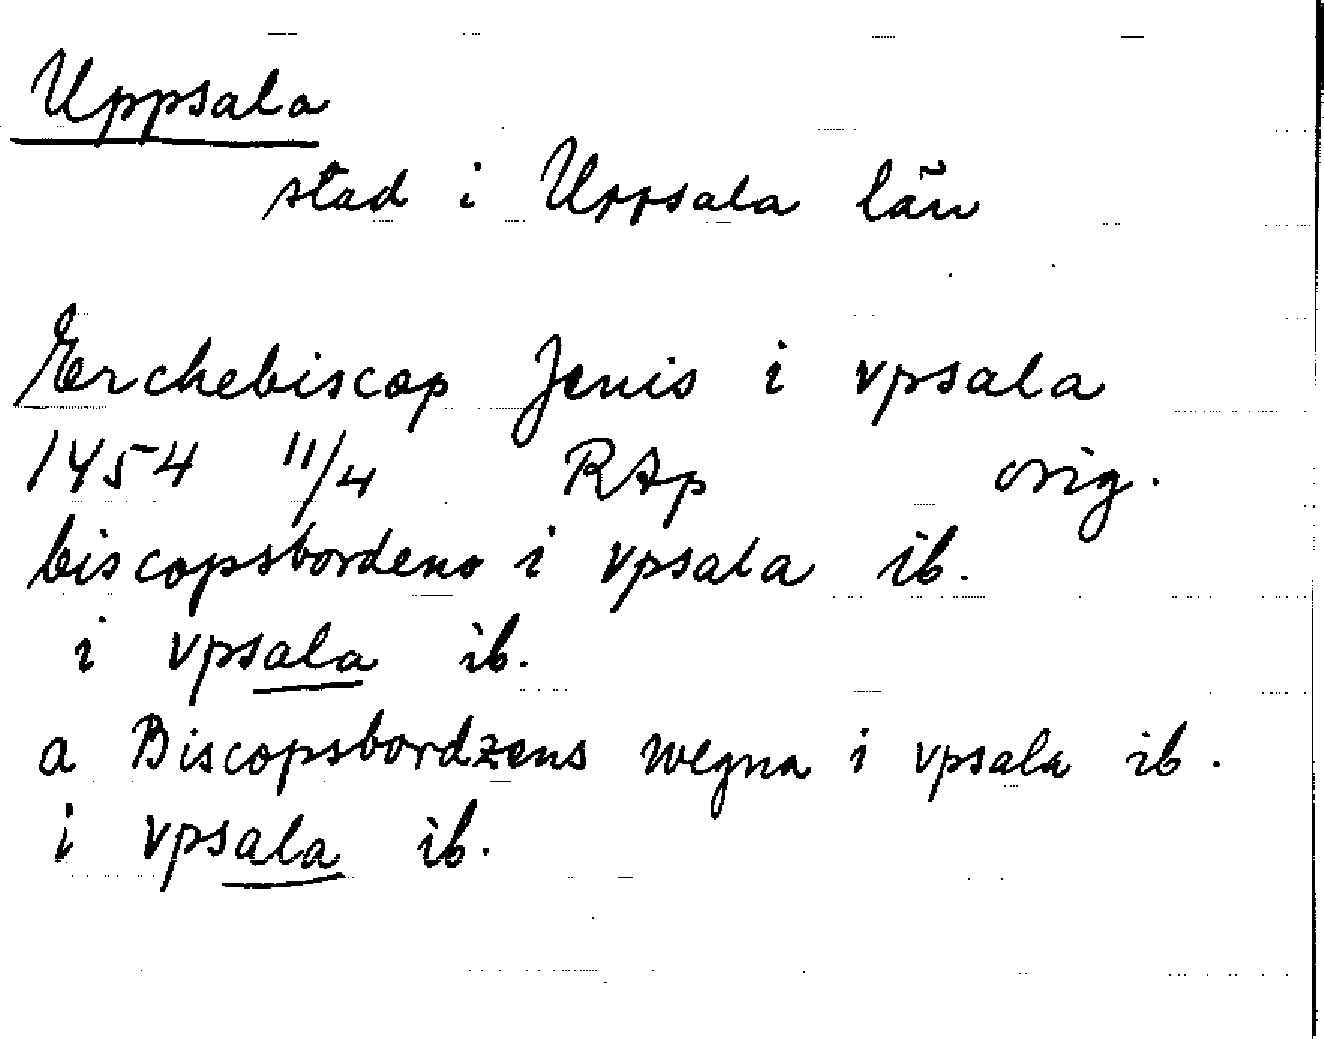 Uppsala
stad i Uppsala län
Erchebiscop Jenis i vpsala
1454 11/4 RAp orig.
biscopsbordens i vpsala ib.
i vpsala ib.
a Biscopsbordzens wegna i vpsala ib.
i vpsala ib.